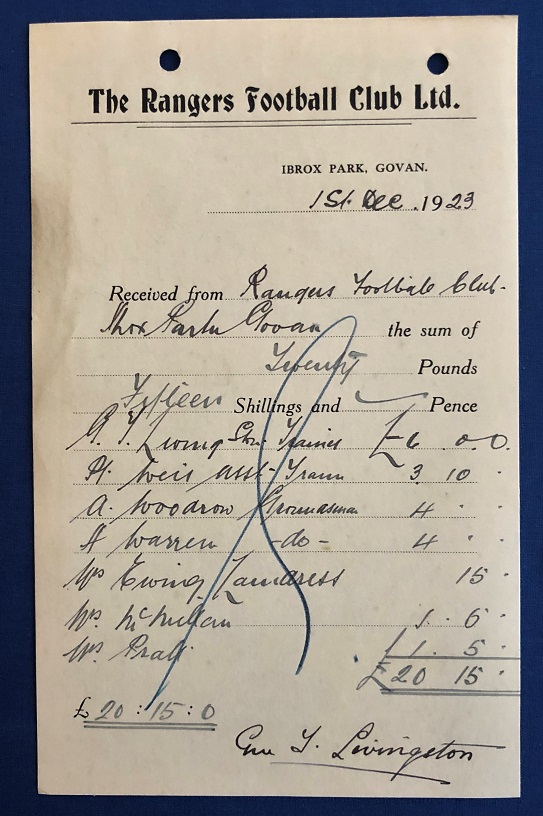 The Rangers Football Club Ltd.
IBROX PARK, GOVAN.
1st. Dec .1923
Received from Rangers Football Club.
Ibrox Park Govan the sum of
Twenty Pounds
Fifteen Shillings and Pence
G. T. Livingston Trainer £6 .0.0.
H. Weir asst. Train 3 10 .
A. Woodrow Groundsman 4 . .
A Warren -do- 4 . .
Mrs Ewing Laundress 15 .
Mrs. McMillan 1 . 6 .
Mrs. Pratt 1 . 5 .
£20 15 .
£ 20 : 15 : 0
Geo T. Livingston